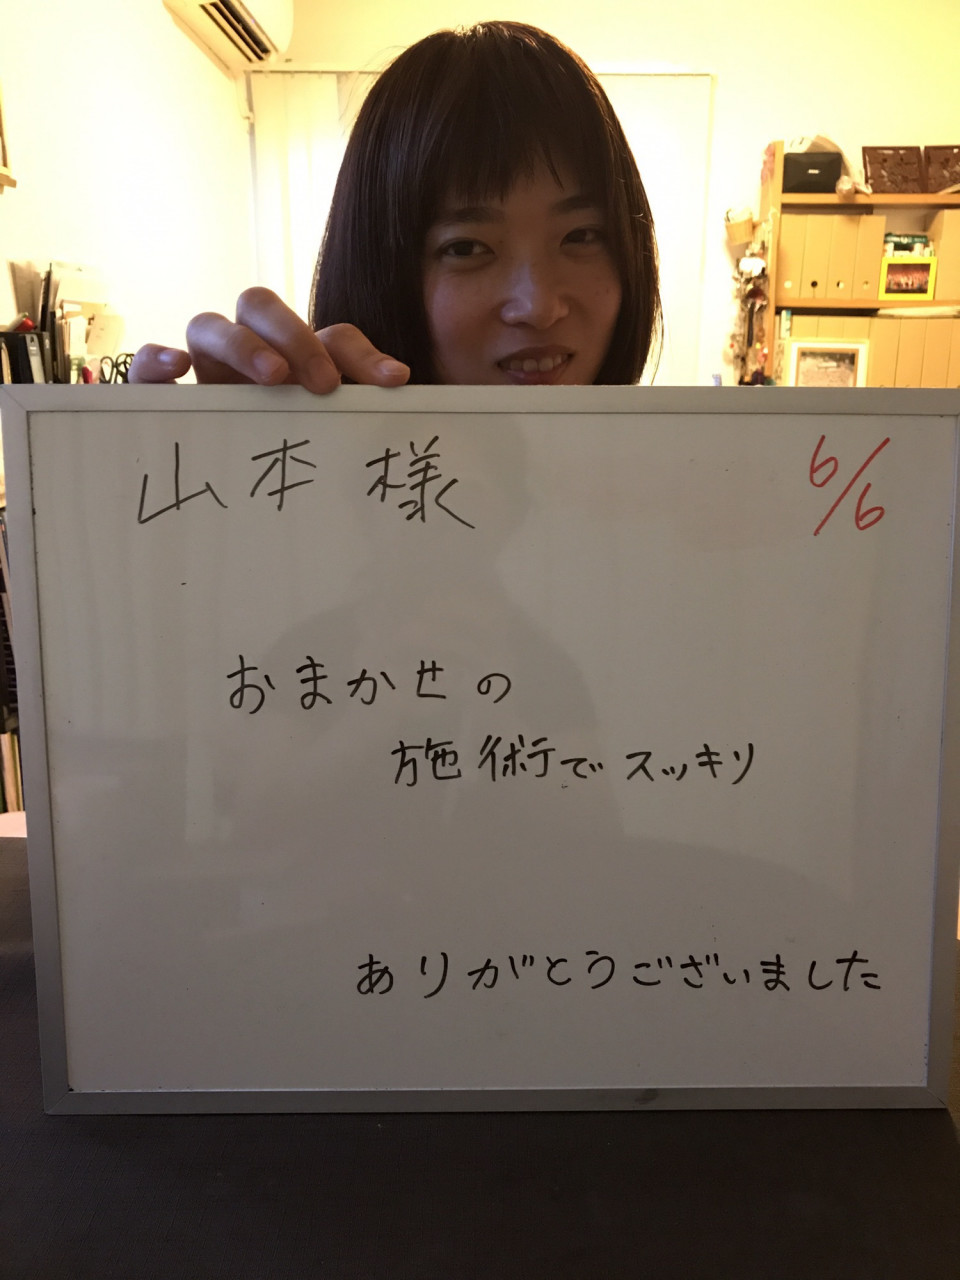 山本様 6/6
おまかせの
施術でスッキリ
ありがとうございました